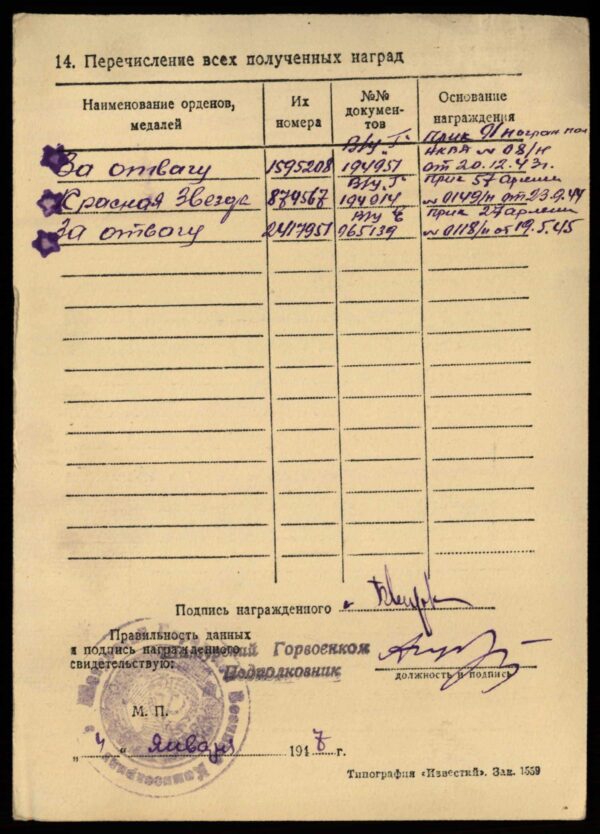 14. Перечисление всех полученных наград
Наименование орденов, медалей
Их номера
№№ документов
Основание награждения
За отвагу 1595208 В/у "Г" 194951 НКВА №08/н от 20.12.43г.
Красная Звезда 874567 В/у "Г" 194014 57 Армии №0149/н от 23.9.44
За отвагу 2417951 В/у Е 065139 27 Армии №0118/н от 19.5.45
Подпись награжденного
Правильность данных
и подпись награжденного
свидетельствую:
Горвоенком
Подполковник
должность и подпись
М. П.
„4“ января 1948 г.
Типография «Известий». Зак. 1559